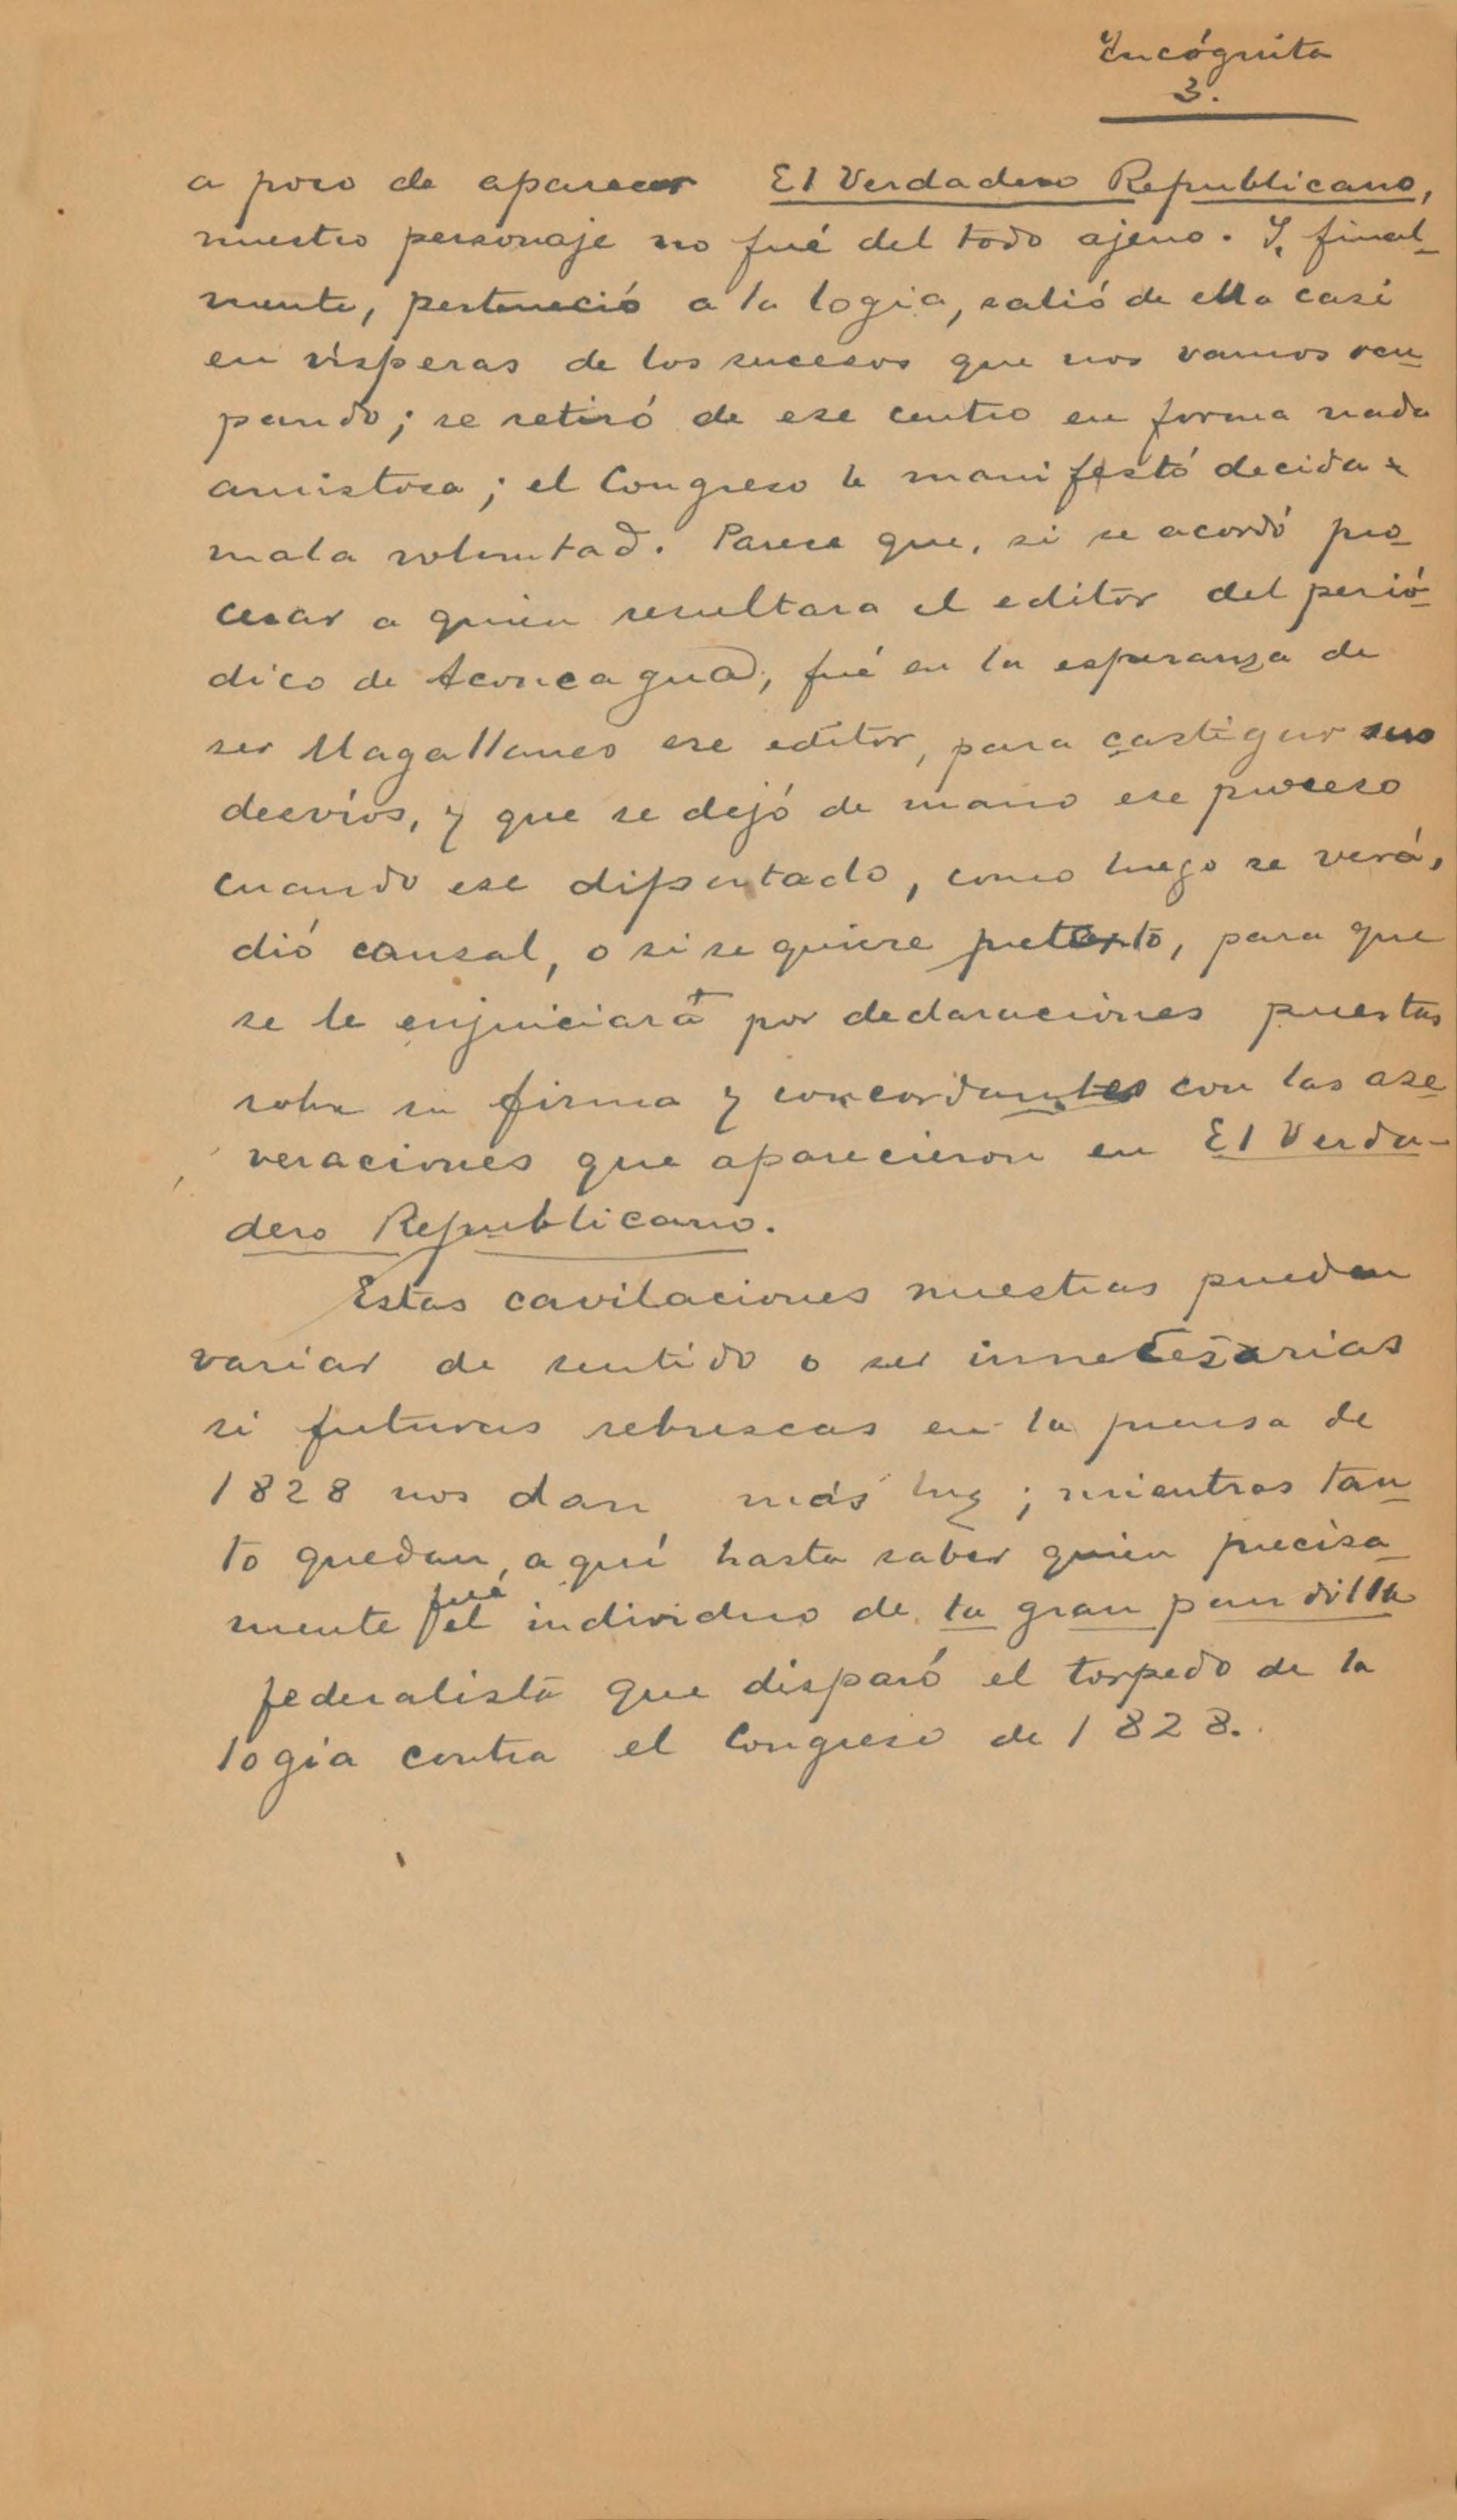 Incógnita
3.
a poco de aparecer El Verdadero Republicano,
nuestro personaje no fué del todo ajeno. Y, final-
mente, perteneció a la logia, salió de ella casi
en vísperas de los sucesos que nos vamos ocu-
pando; se retiró de ese centro en forma nada
amistosa; el Congreso le manifestó decida
mala voluntad. Parece que, si se acordó pro-
cesar a quien resultara el editor del perió-
dico de Aconcagua, fué en la esperanza de
ser Magallanes ese editor, para castigar sus
desvíos, y que se dejó de mano ese proceso
cuando ese dipsutado, como luego se verá,
dió causal, o si se quiere pretexto, para que
se le enjuiciara por declaraciones puestas
sobre su firma y concordantes con las ase-
veraciones que aparecieron en El Verda-
dero Republicano.
Estas cavilaciones nuestras pueden
variar de sentido o ser innecesarias
si futuras rebuscas en la prensa de
1828 nos dan más luz; mientras tan-
to quedan, aquí hasta saber quien precisa-
mente fué el individuo de la gran pandilla
federalista que disparó el torpedo de la
logia contra el Congreso de 1828.